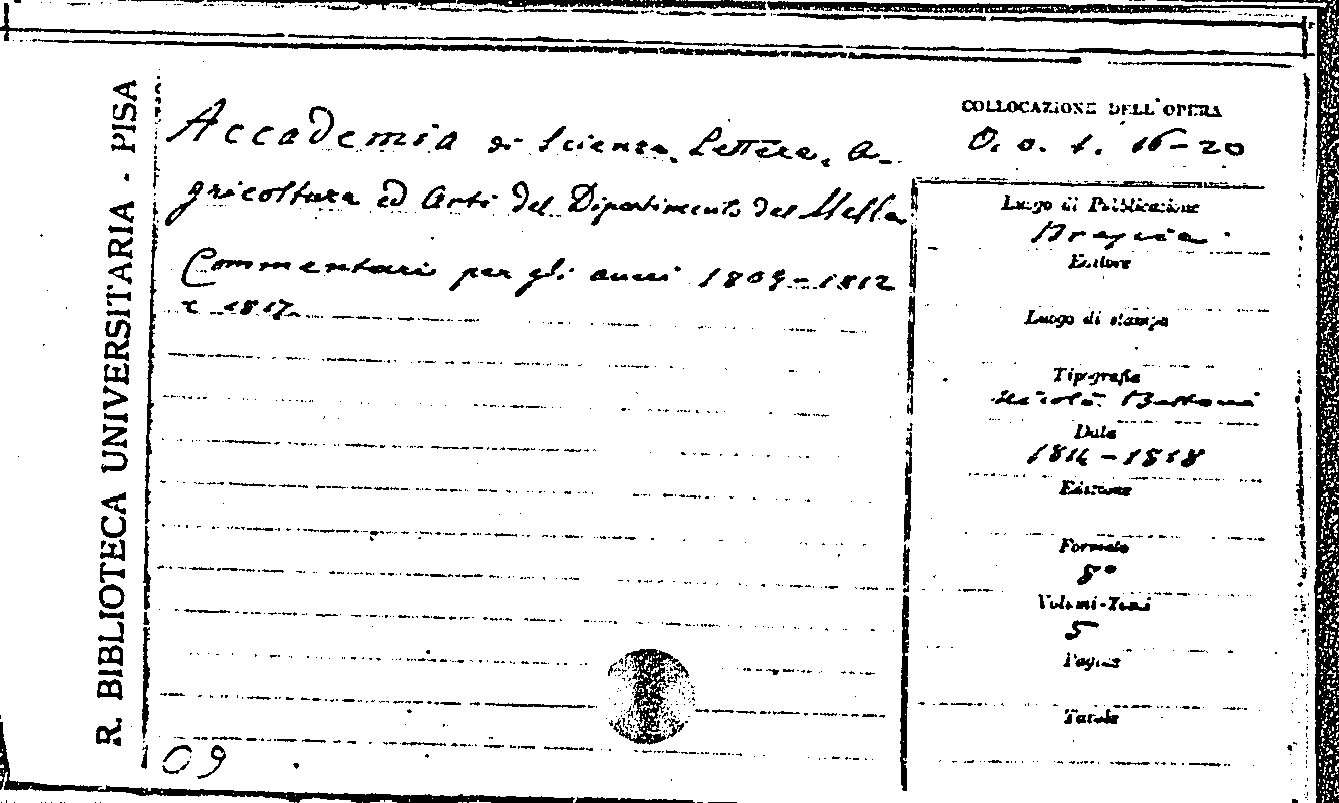 R. BIBLIOTECA UNIVERSITARIA - PISA
Accademia di Scienze, Lettere, A-
gricoltura ed Arti del Dipartimento del Mella
Commentari per gli anni 1809-1812
e 1817.
09
COLLOCAZIONE DELL'OPERA
O. o. 1. 16-20
Luogo di Pubblicazione
Brescia
Editore
Luogo di stampa
Tipografia
Nicolò Bettoni
Data
1814-1818
Edizione
Formato
8°
Volumi-Tomi
5
Pagine
Tavole